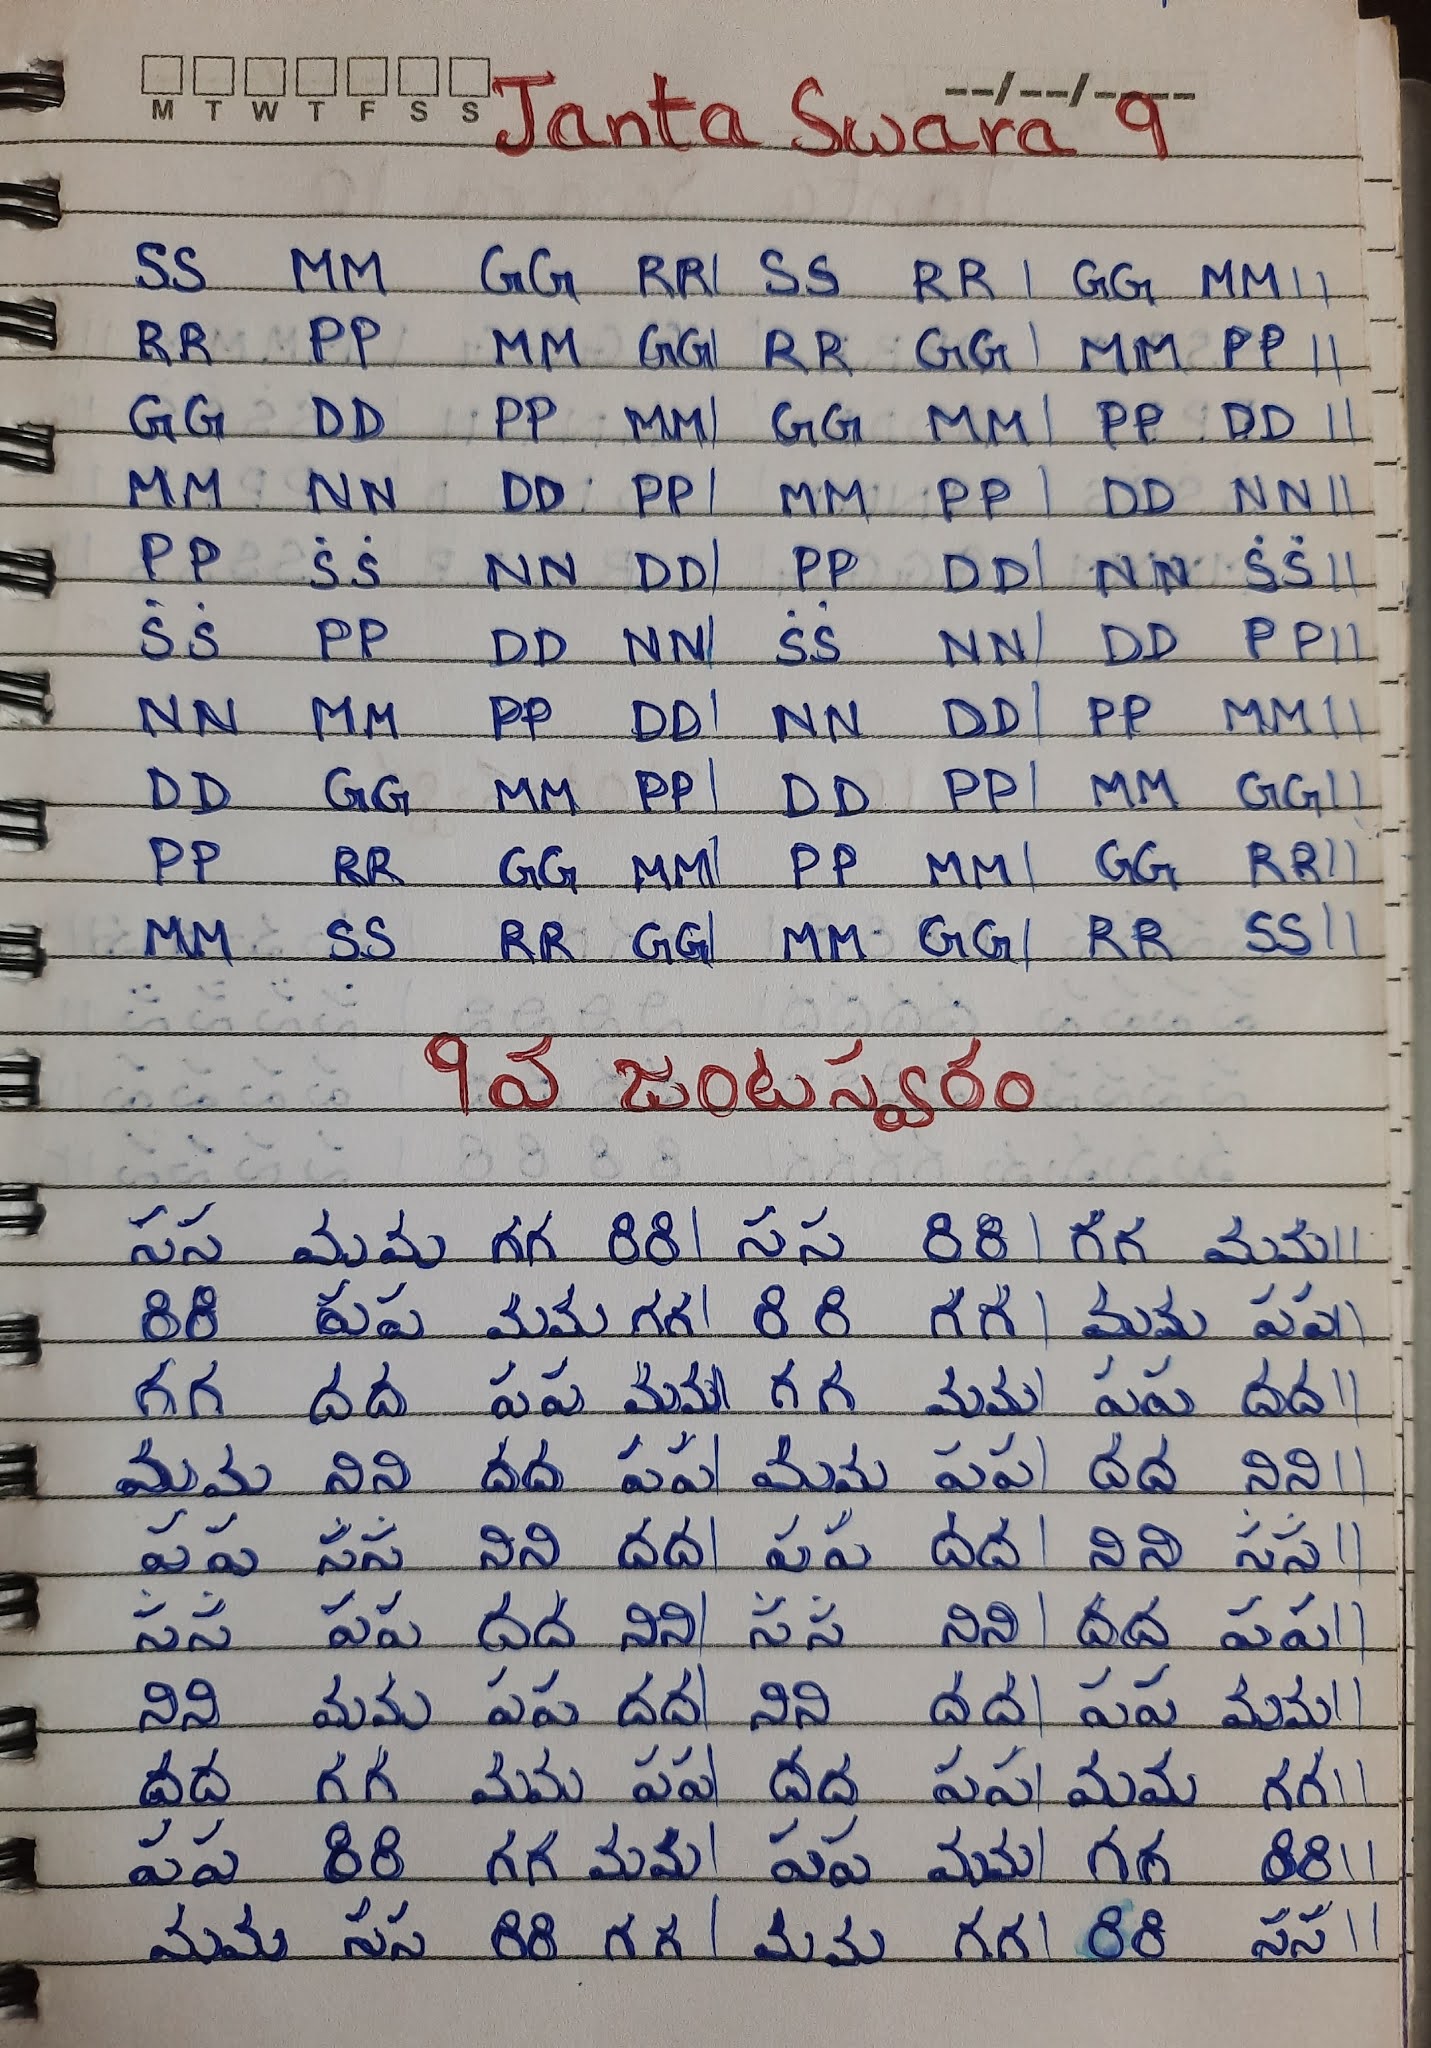 M T W T F S S Janta Swara 9 --/--/----
SS MM GG RR| SS RR | GG MM||
RR PP MM GG| RR GG | MM PP ||
GG DD PP MM| GG MM | PP DD ||
MM NN DD PP| MM PP | DD NN||
PP ṠṠ NN DD| PP DD| NN ṠṠ||
ṠṠ PP DD NN| ṠṠ NN| DD PP||
NN MM PP DD| NN DD| PP MM||
DD GG MM PP| DD PP| MM GG||
PP RR GG MM| PP MM| GG RR||
MM SS RR GG| MM GG| RR SS||
9వ జంటస్వరం
సస మమ గగ రిరి| సస రిరి| గగ మమ||
రిరి పప మమ గగ| రి రి గగ| మమ పప||
గగ దద పప మమ| గగ మమ| పప దద||
మమ నిని దద పప| మమ పప| దద నిని||
పప స̇స̇ నిని దద| పప దద| నిని స̇స̇||
స̇స̇ పప దద నిని| స̇స̇ నిని| దద పప||
నిని మమ పప దద| నిని దద| పప మమ||
దద గగ మమ పప| దద పప| మమ గగ||
పప రిరి గగ మమ| పప మమ| గగ రిరి||
మమ సస రిరి గగ| మమ గగ| రిరి సస||